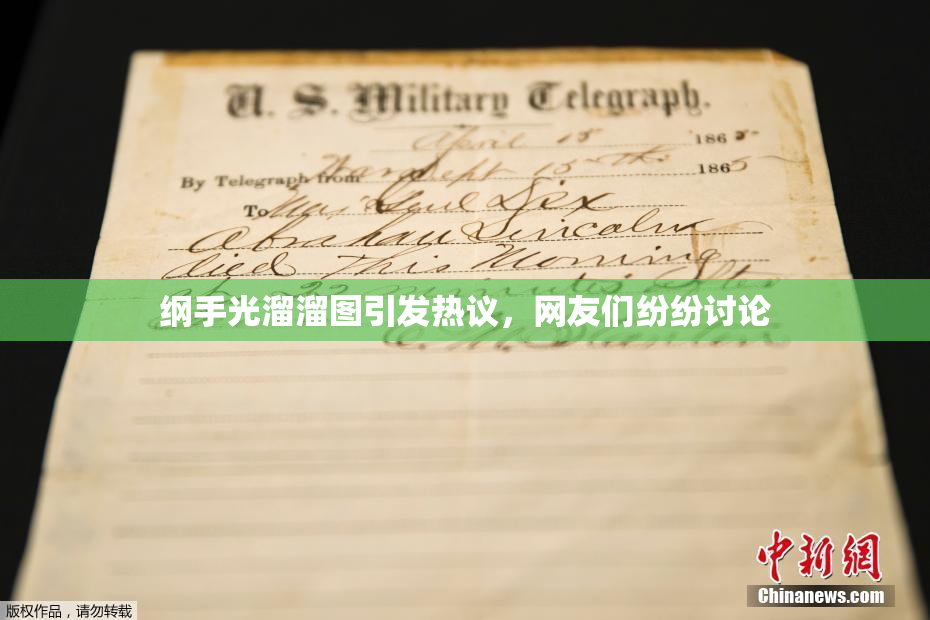 U. S. Military Telegraph.
April 15 1865
By Telegraph from War Dept 15th 1865
To Maj Genl Dix
Abraham Lincoln
died This Morning
at 22 minutes after
纲手光溜溜图引发热议，网友们纷纷讨论
E. M. Stanton
中新网
Chinanews.com
版权作品，请勿转载